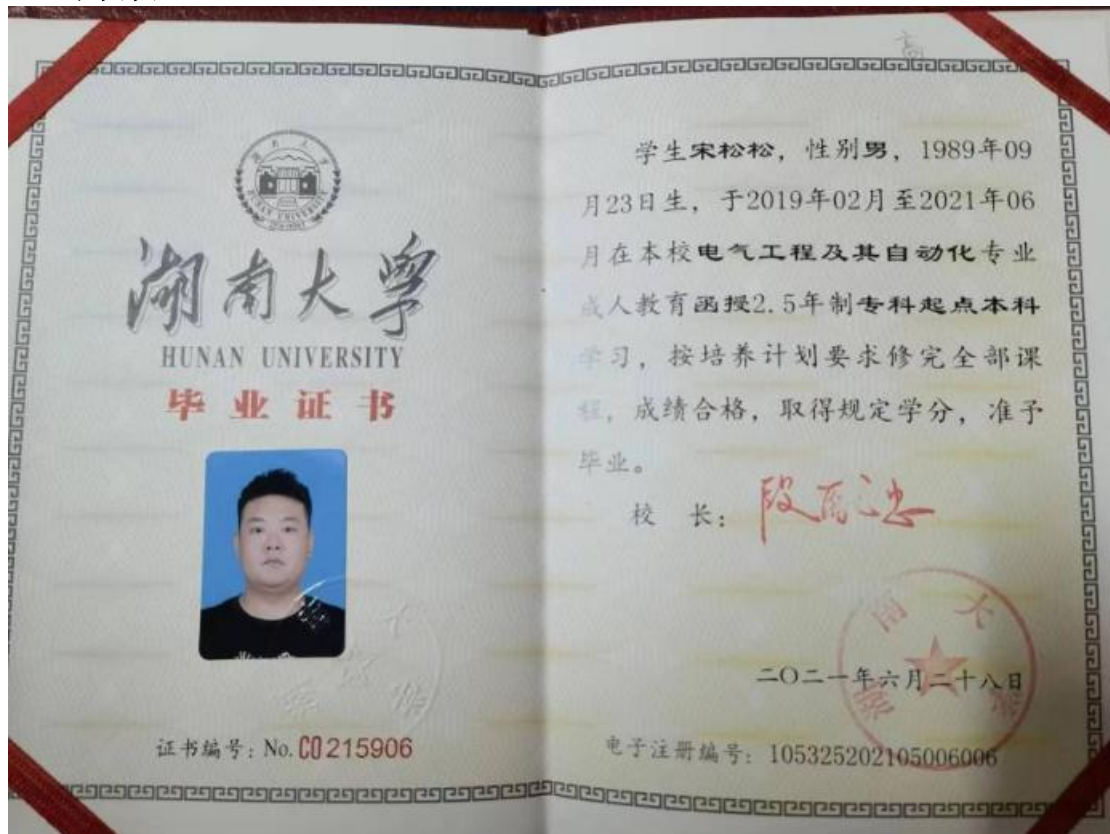 湖南大学
HUNAN UNIVERSITY
毕业证书
证书编号：No. C0215906
高
学生宋松松，性别男，1989年09
月23日生，于2019年02月至2021年06
月在本校电气工程及其自动化专业
成人教育函授2.5年制专科起点本科
学习，按培养计划要求修完全部课
程，成绩合格，取得规定学分，准予
毕业。
校 长：
二〇二一年六月二十八日
电子注册编号：105325202105006006